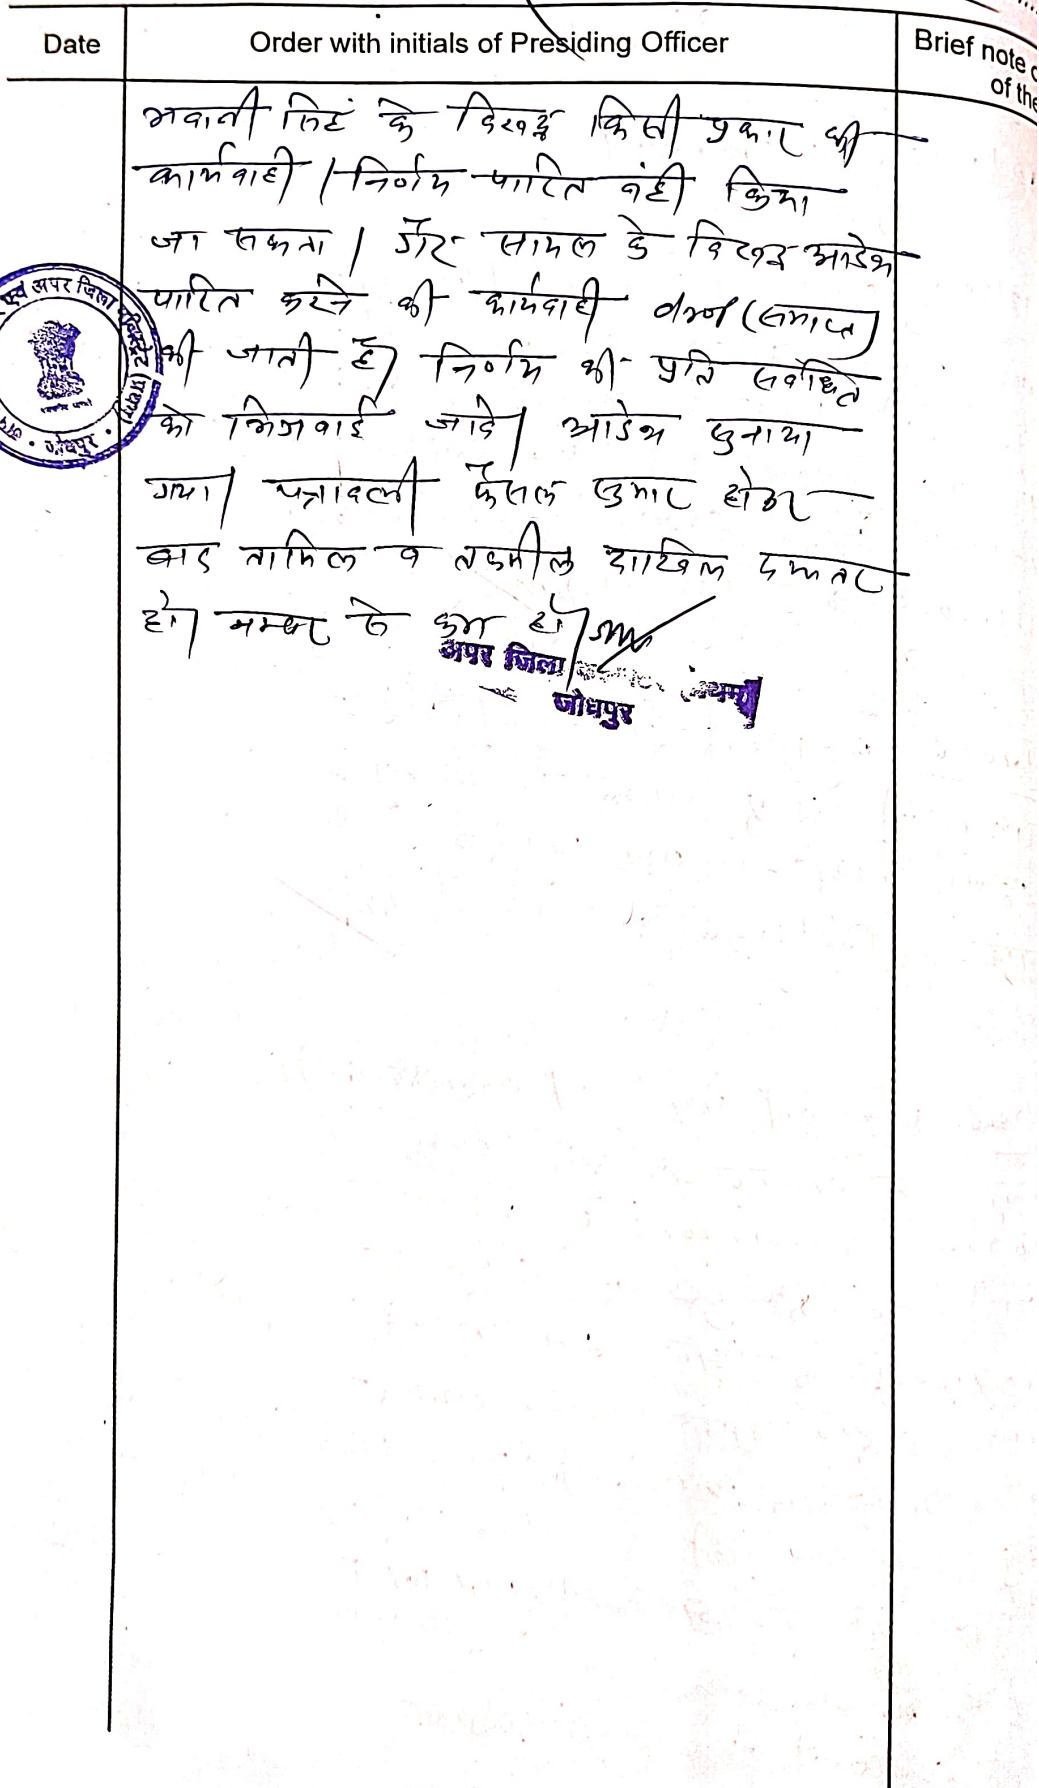 Date
Order with initials of Presiding Officer
Brief note
of the
भवानी सिहं के विरूद्ध किसी प्रकार की
कार्यवाही / निर्णय पारित नही किया
जा सकता । गैर सायल के विरूद्ध आदेश
पारित करने की कार्यवाही (समाप्त)
की जाती है। निर्णय की प्रति सबंधित
को भिजवाई जावे। आदेश सुनाया
गया। पत्रावली फैसल सुमार होकर
बाद तामिल व तकमील दाखिल दफ्तर
हो। नम्बर से कम हो।
एवं अपर जिला
जोधपुर
अपर जिला
जोधपुर